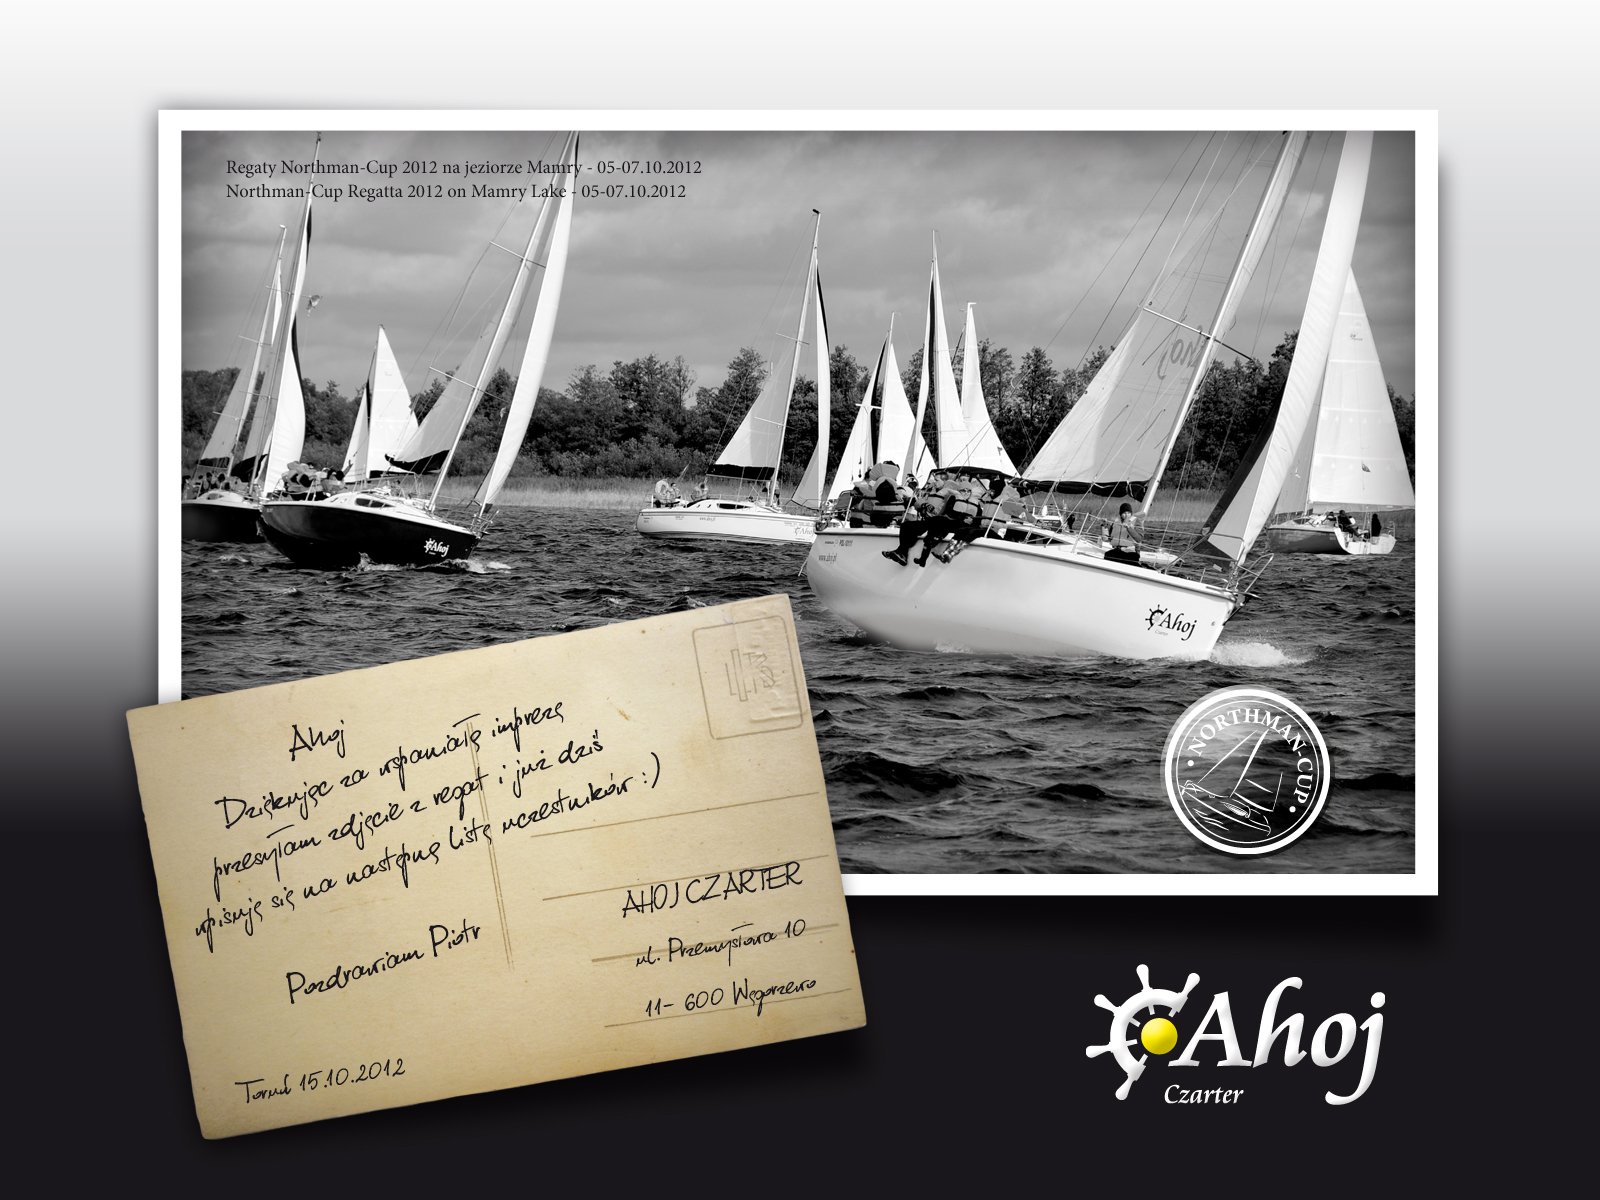 Regaty Northman-Cup 2012 na jeziorze Mamry - 05-07.10.2012
Northman-Cup Regatta 2012 on Mamry Lake - 05-07.10.2012
Ahoj
Ahoj
Ahoj
Ahoj
Czarter
• NORTHMAN-CUP •
Ahoj
Dziękując za wspaniałą imprezę
przesyłam zdjęcie z regat i już dziś
wpisuję się na następną listę uczestników :)
Pozdrawiam Piotr
Toruń 15.10.2012
AHOJ CZARTER
ul. Przemysłowa 10
11-600 Węgorzewo
Ahoj
Czarter